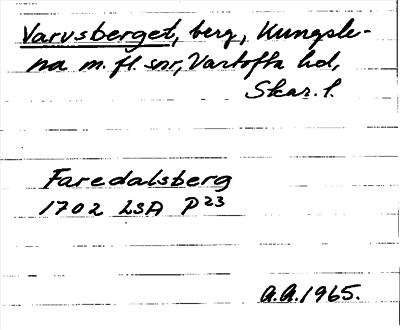 Varvsberget, berg, Kungsle-
na m. fl. snr, Vartofta hd,
Skar. l.
Faredalsberg
1702 LSA P23
A.A. 1965.